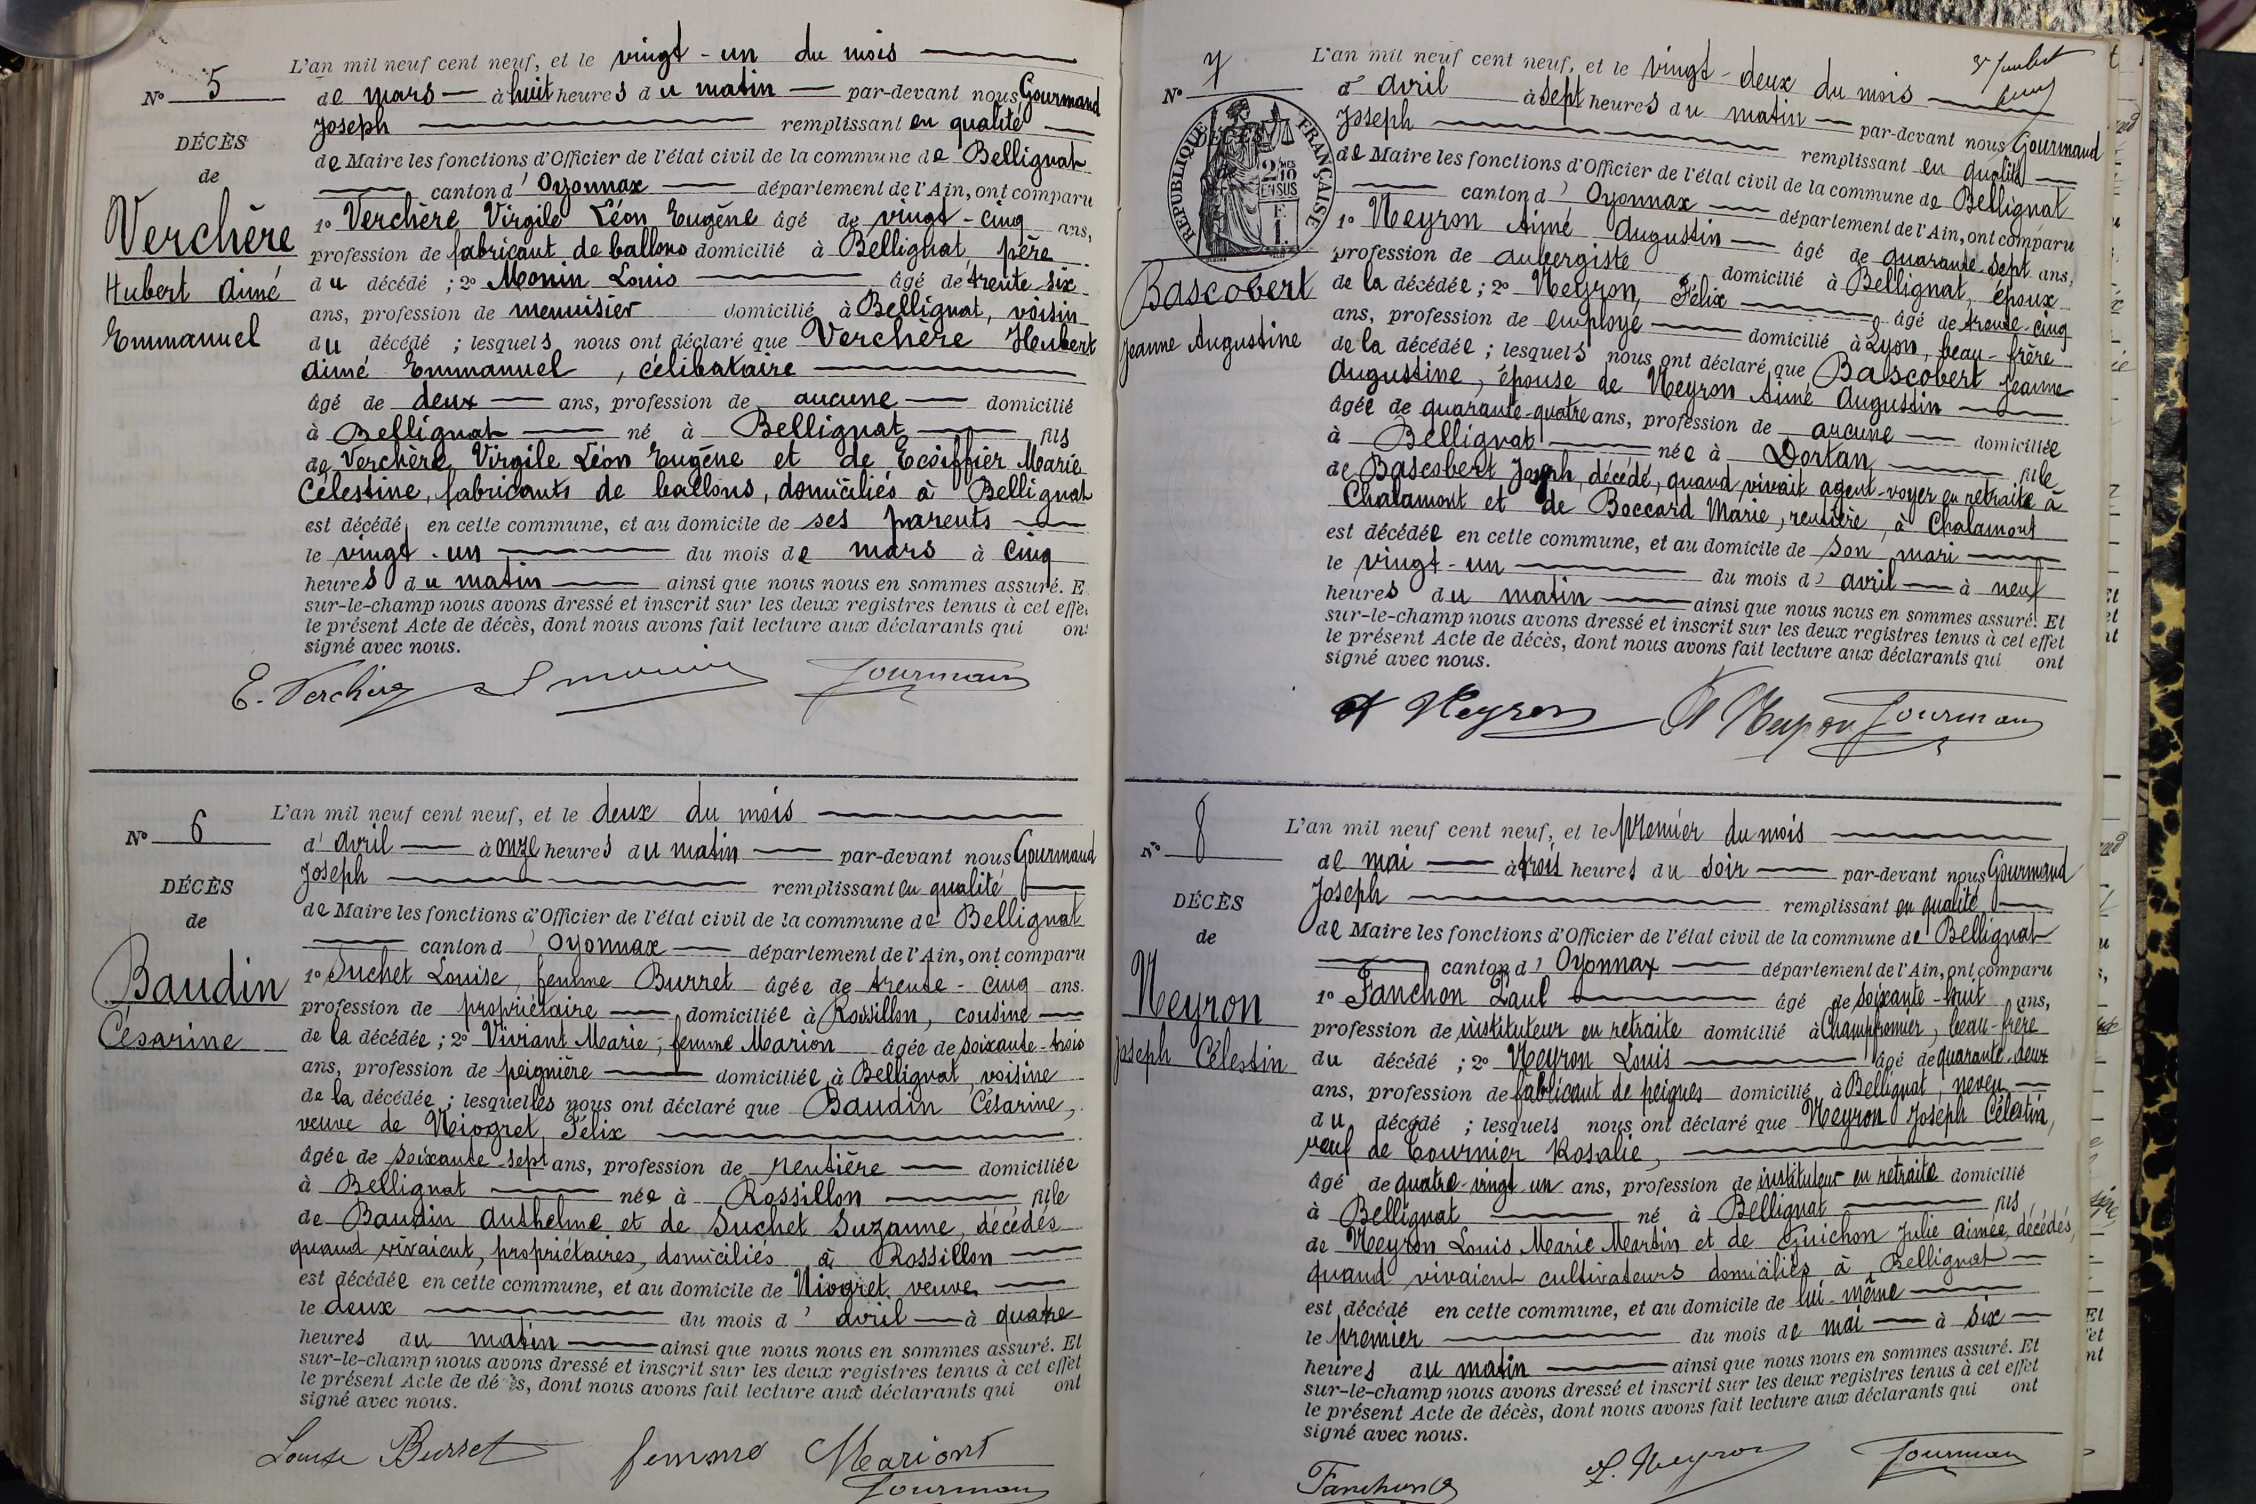 L'an mil neuf cent neuf, et le vingt-un du mois
No 5
de mars à huit heures du matin par-devant nous Gourmand
Joseph remplissant en qualité
DÉCÈS
de Maire les fonctions d'Officier de l'état civil de la commune de Bellignat
de
canton d'Oyonnax département de l'Ain, ont comparu
Verchère
Hubert Aimé
Emmanuel
1o Verchère Virgile Léon Eugène âgé de vingt-cinq ans,
profession de fabricant de ballons domicilié à Bellignat, père
du décédé ; 2o Monin Louis âgé de trente-six
ans, profession de menuisier domicilié à Bellignat, voisin
du décédé ; lesquels nous ont déclaré que Verchère Hubert
Aimé Emmanuel, célibataire
âgé de deux ans, profession de aucune domicilié
à Bellignat né à Bellignat fils
de Verchère Virgile Léon Eugène et de Ecoiffier Marie
Célestine, fabricants de ballons, domiciliés à Bellignat
est décédé en cette commune, et au domicile de ses parents
le vingt-un du mois de mars à cinq
heures du matin ainsi que nous nous en sommes assuré. E
sur-le-champ nous avons dressé et inscrit sur les deux registres tenus à cet effe
le présent Acte de décès, dont nous avons fait lecture aux déclarants qui ont
signé avec nous.
E. Verchère L Monin Gourmand
L'an mil neuf cent neuf, et le deux du mois
No 6
d'avril à onze heures du matin par-devant nous Gourmand
Joseph remplissant en qualité
DÉCÈS
de Maire les fonctions d'Officier de l'état civil de la commune de Bellignat
de
canton d'Oyonnax département de l'Ain, ont comparu
Baudin
Césarine
1o Suchet Louise, femme Burret âgée de trente-cinq ans.
profession de propriétaire domiciliée à Rossillon, cousine
de la décédée ; 2o Viviant Marie, femme Marion âgée de soixante-trois
ans, profession de peignière domiciliée à Bellignat, voisine
de la décédée ; lesquelles nous ont déclaré que Baudin Césarine,
veuve de Niogret Félix
âgée de soixante-sept ans, profession de rentière domiciliée
à Bellignat née à Rossillon fille
de Baudin Anthelme et de Suchet Suzanne, décédés
quand vivaient, propriétaires, domiciliés à Rossillon
est décédée en cette commune, et au domicile de Niogret veuve
le deux du mois d'avril à quatre
heures du matin ainsi que nous nous en sommes assuré. Et
sur-le-champ nous avons dressé et inscrit sur les deux registres tenus à cet effet
le présent Acte de décès, dont nous avons fait lecture aux déclarants qui ont
signé avec nous.
Louise Burret femme Mariont
Gourmand
L'an mil neuf cent neuf, et le vingt-deux du mois
No 7
d'avril à sept heures du matin par-devant nous Gourmand
Joseph remplissant en qualité
RÉPUBLIQUE FRANÇAISE
2 MES
10
EN SUS
de Maire les fonctions d'Officier de l'état civil de la commune de Bellignat
canton d'Oyonnax département de l'Ain, ont comparu
Bascobert
Jeanne Augustine
1o Neyron Aimé Augustin âgé de quarante-sept ans,
profession de aubergiste domicilié à Bellignat, époux
de la décédée ; 2o Neyron, Félix âgé de trente-cinq
ans, profession de employé domicilié à Lyon, beau-frère
de la décédée ; lesquels nous ont déclaré que Bascobert Jeanne
Augustine, épouse de Neyron Aimé Augustin
âgée de quarante-quatre ans, profession de aucune domiciliée
à Bellignat née à Dortan fille
de Bascobert Joseph, décédé, quand vivait agent-voyer en retraite à
Chalamont et de Boccard Marie, rentière, à Chalamont
est décédée en cette commune, et au domicile de son mari
le vingt-un du mois d'avril à neuf
heures du matin ainsi que nous nous en sommes assuré. Et
sur-le-champ nous avons dressé et inscrit sur les deux registres tenus à cet effet
le présent Acte de décès, dont nous avons fait lecture aux déclarants qui ont
signé avec nous.
A Neyron F Neyron Gourmand
L'an mil neuf cent neuf, et le premier du mois
No 8
de mai à trois heures du soir par-devant nous Gourmand
Joseph remplissant en qualité
DÉCÈS
de Maire les fonctions d'Officier de l'état civil de la commune de Bellignat
de
canton d'Oyonnax département de l'Ain, ont comparu
Neyron
Joseph Célestin
1o Fanchon Paul âgé de soixante-huit ans,
profession de instituteur en retraite domicilié à Champfromier, beau-frère
du décédé ; 2o Neyron Louis âgé de quarante-deux
ans, profession de fabricant de peignes domicilié à Bellignat, neveu
du décédé ; lesquels nous ont déclaré que Neyron Joseph Célestin,
veuf de Tournier Rosalie,
âgé de quatre-vingt-un ans, profession de instituteur en retraite domicilié
à Bellignat né à Bellignat fils
de Neyron Louis Marie Martin et de Guichon Julie Aimée, décédés,
quand vivaient cultivateurs domiciliés à Bellignat
est décédé en cette commune, et au domicile de lui-même
le premier du mois de mai à six
heures du matin ainsi que nous nous en sommes assuré. Et
sur-le-champ nous avons dressé et inscrit sur les deux registres tenus à cet effet
le présent Acte de décès, dont nous avons fait lecture aux déclarants qui ont
signé avec nous.
Fanchon L. Neyron Gourmand